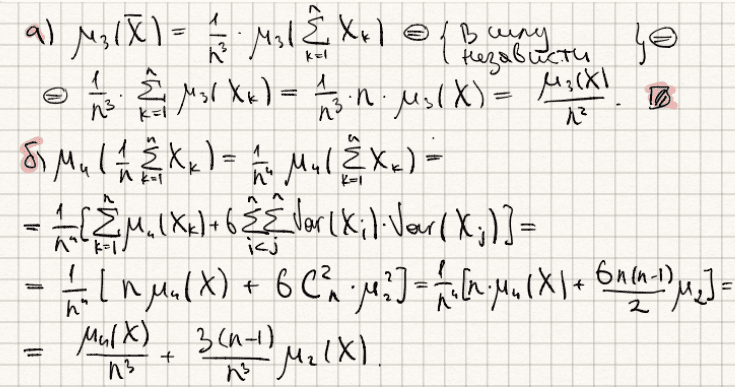 а) μ₃(X̄) = 1/n³ · μ₃(∑ₖ₌₁ⁿ Xₖ) ⊜ { В силу независти } ⊜
⊜ 1/n³ · ∑ₖ₌₁ⁿ μ₃(Xₖ) = 1/n³ · n · μ₃(X) = μ₃(X)/n² .
б) μ₄(1/n ∑ₖ₌₁ⁿ Xₖ) = 1/n⁴ μ₄(∑ₖ₌₁ⁿ Xₖ) =
= 1/n⁴ [∑ₖ₌₁ⁿ μ₄(Xₖ) + 6 ∑ⁿ∑ⁿ i<j Var(Xᵢ) · Var(Xⱼ)] =
= 1/n⁴ [n μ₄(X) + 6 Cₙ² · μ₂²] = 1/n⁴ [n · μ₄(X) + 6n(n-1)/2 μ₂] =
= μ₄(X)/n³ + 3(n-1)/n³ μ₂(X).